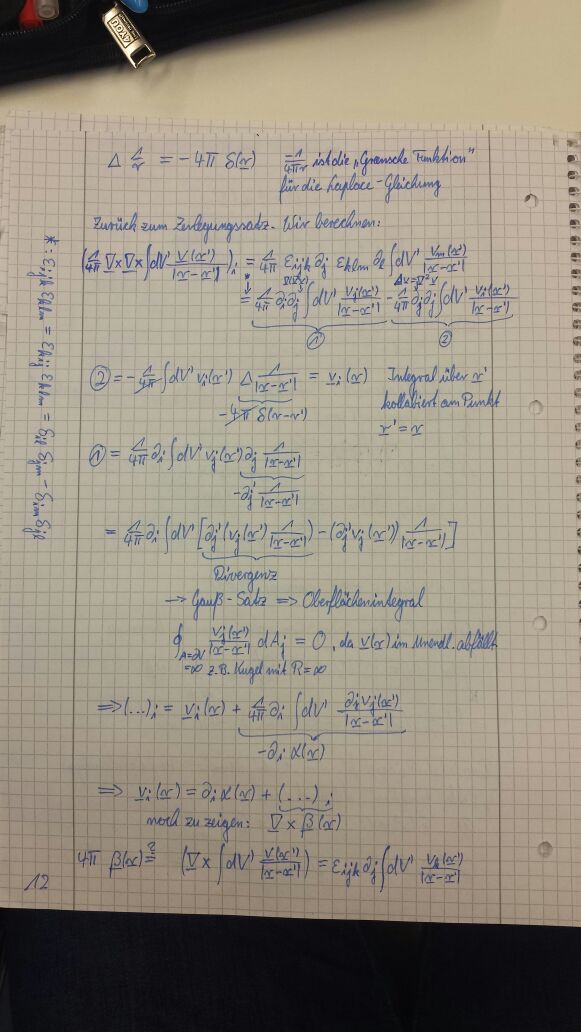 4YOU
Δ 1/r = -4π δ(r)   -1/4πr ist die „Greensche Funktion"
für die Laplace-Gleichung
Zurück zum Zerlegungssatz. Wir berechnen:
(1/4π ∇×∇×∫dV' v(x')/|x-x'|)_i = 1/4π ε_ijk ∂_j ε_klm ∂_l ∫dV' v_m(x')/|x-x'|
* ∇(∇·v)   Δv=∇²v
= 1/4π ∂_i∂_j ∫dV' v_j(x')/|x-x'| - 1/4π ∂_j∂_j ∫dV' v_i(x')/|x-x'|
① ②
② = -1/4π ∫dV' v_i(x') Δ 1/|x-x'| = v_i(x)   Integral über x'
-4π δ(x-x')   kollabiert am Punkt
x' = x
① = 1/4π ∂_i ∫dV' v_j(x') ∂_j 1/|x-x'|
-∂_j' 1/|x-x'|
= 1/4π ∂_i ∫dV' [∂_j'(v_j(x') 1/|x-x'|) - (∂_j' v_j(x')) 1/|x-x'|]
Divergenz
→ Gauß-Satz => Oberflächenintegral
∮ v_j(x')/|x-x'| dA_j = 0, da v(x) im Unendl. abfällt
A=∂V
=∞ z.B. Kugel mit R=∞
=> (...)_i = v_i(x) + 1/4π ∂_i ∫dV' ∂_j v_j(x')/|x-x'|
-∂_i α(x)
=> v_i(x) = ∂_i α(x) + (...)_i
noch zu zeigen: ∇×β(x)
4π β(x) ?= (∇×∫dV' v(x')/|x-x'|) = ε_ijk ∂_j ∫dV' v_k(x')/|x-x'|
12
*: ε_ijk ε_klm = ε_kij ε_klm = δ_il δ_jm - δ_im δ_jl